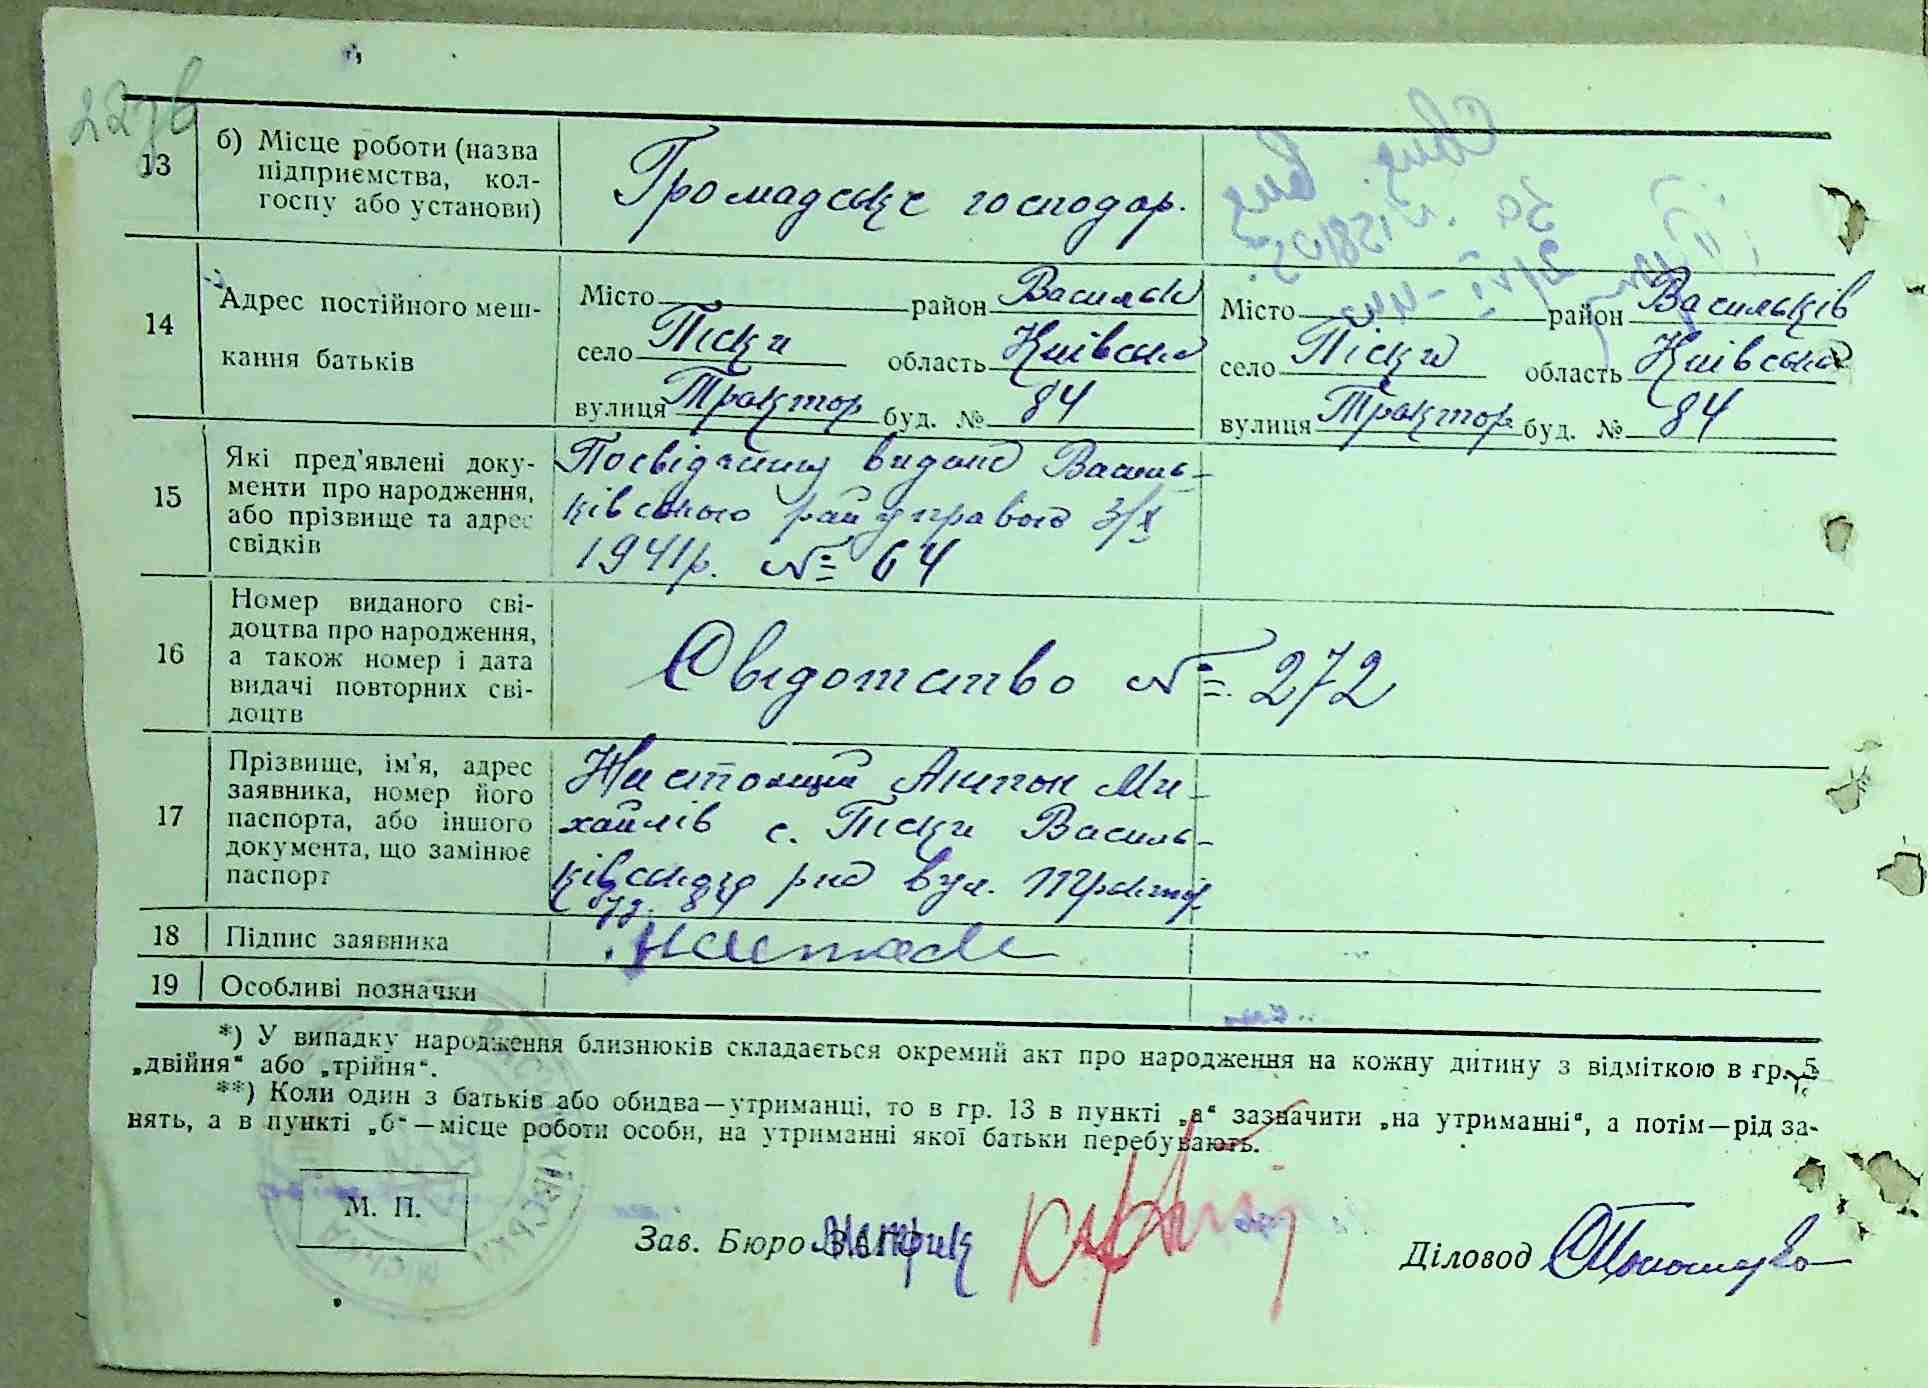 227в
13
б) Місце роботи (назва
підприємства, кол-
госпу або установи)
Громадське господар.
14
Адрес постійного меш-
кання батьків
Місто район Васильк
село Піски область Київська
вулиця Трактор буд. № 84
Місто район Васильків
село Піски область Київська
вулиця Трактор. буд. № 84
15
Які пред'явлені доку-
менти про народження,
або прізвище та адрес
свідків
видано Василь-
ківською райуправою 3/X
1941р. № 64
16
Номер виданого сві-
доцтва про народження,
а також номер і дата
видачі повторних сві-
доцтв
Свідотство № 272
17
Прізвище, ім'я, адрес
заявника, номер його
паспорта, або іншого
документа, що замінює
паспорт
Антон Ми-
хайлів с. Піски Василь-
ківського рна вул.
буд. 84
18
Підпис заявника
19
Особливі позначки
*) У випадку народження близнюків складається окремий акт про народження на кожну дитину з відміткою в гр. 5
„двійня“ або „трійня“.
**) Коли один з батьків або обидва—утриманці, то в гр. 13 в пункті „а“ зазначити „на утриманні“, а потім—рід за-
нять, а в пункті „б“—місце роботи особи, на утриманні якої батьки перебувають.
М. П.
Зав. Бюро ЗАГС
Діловод